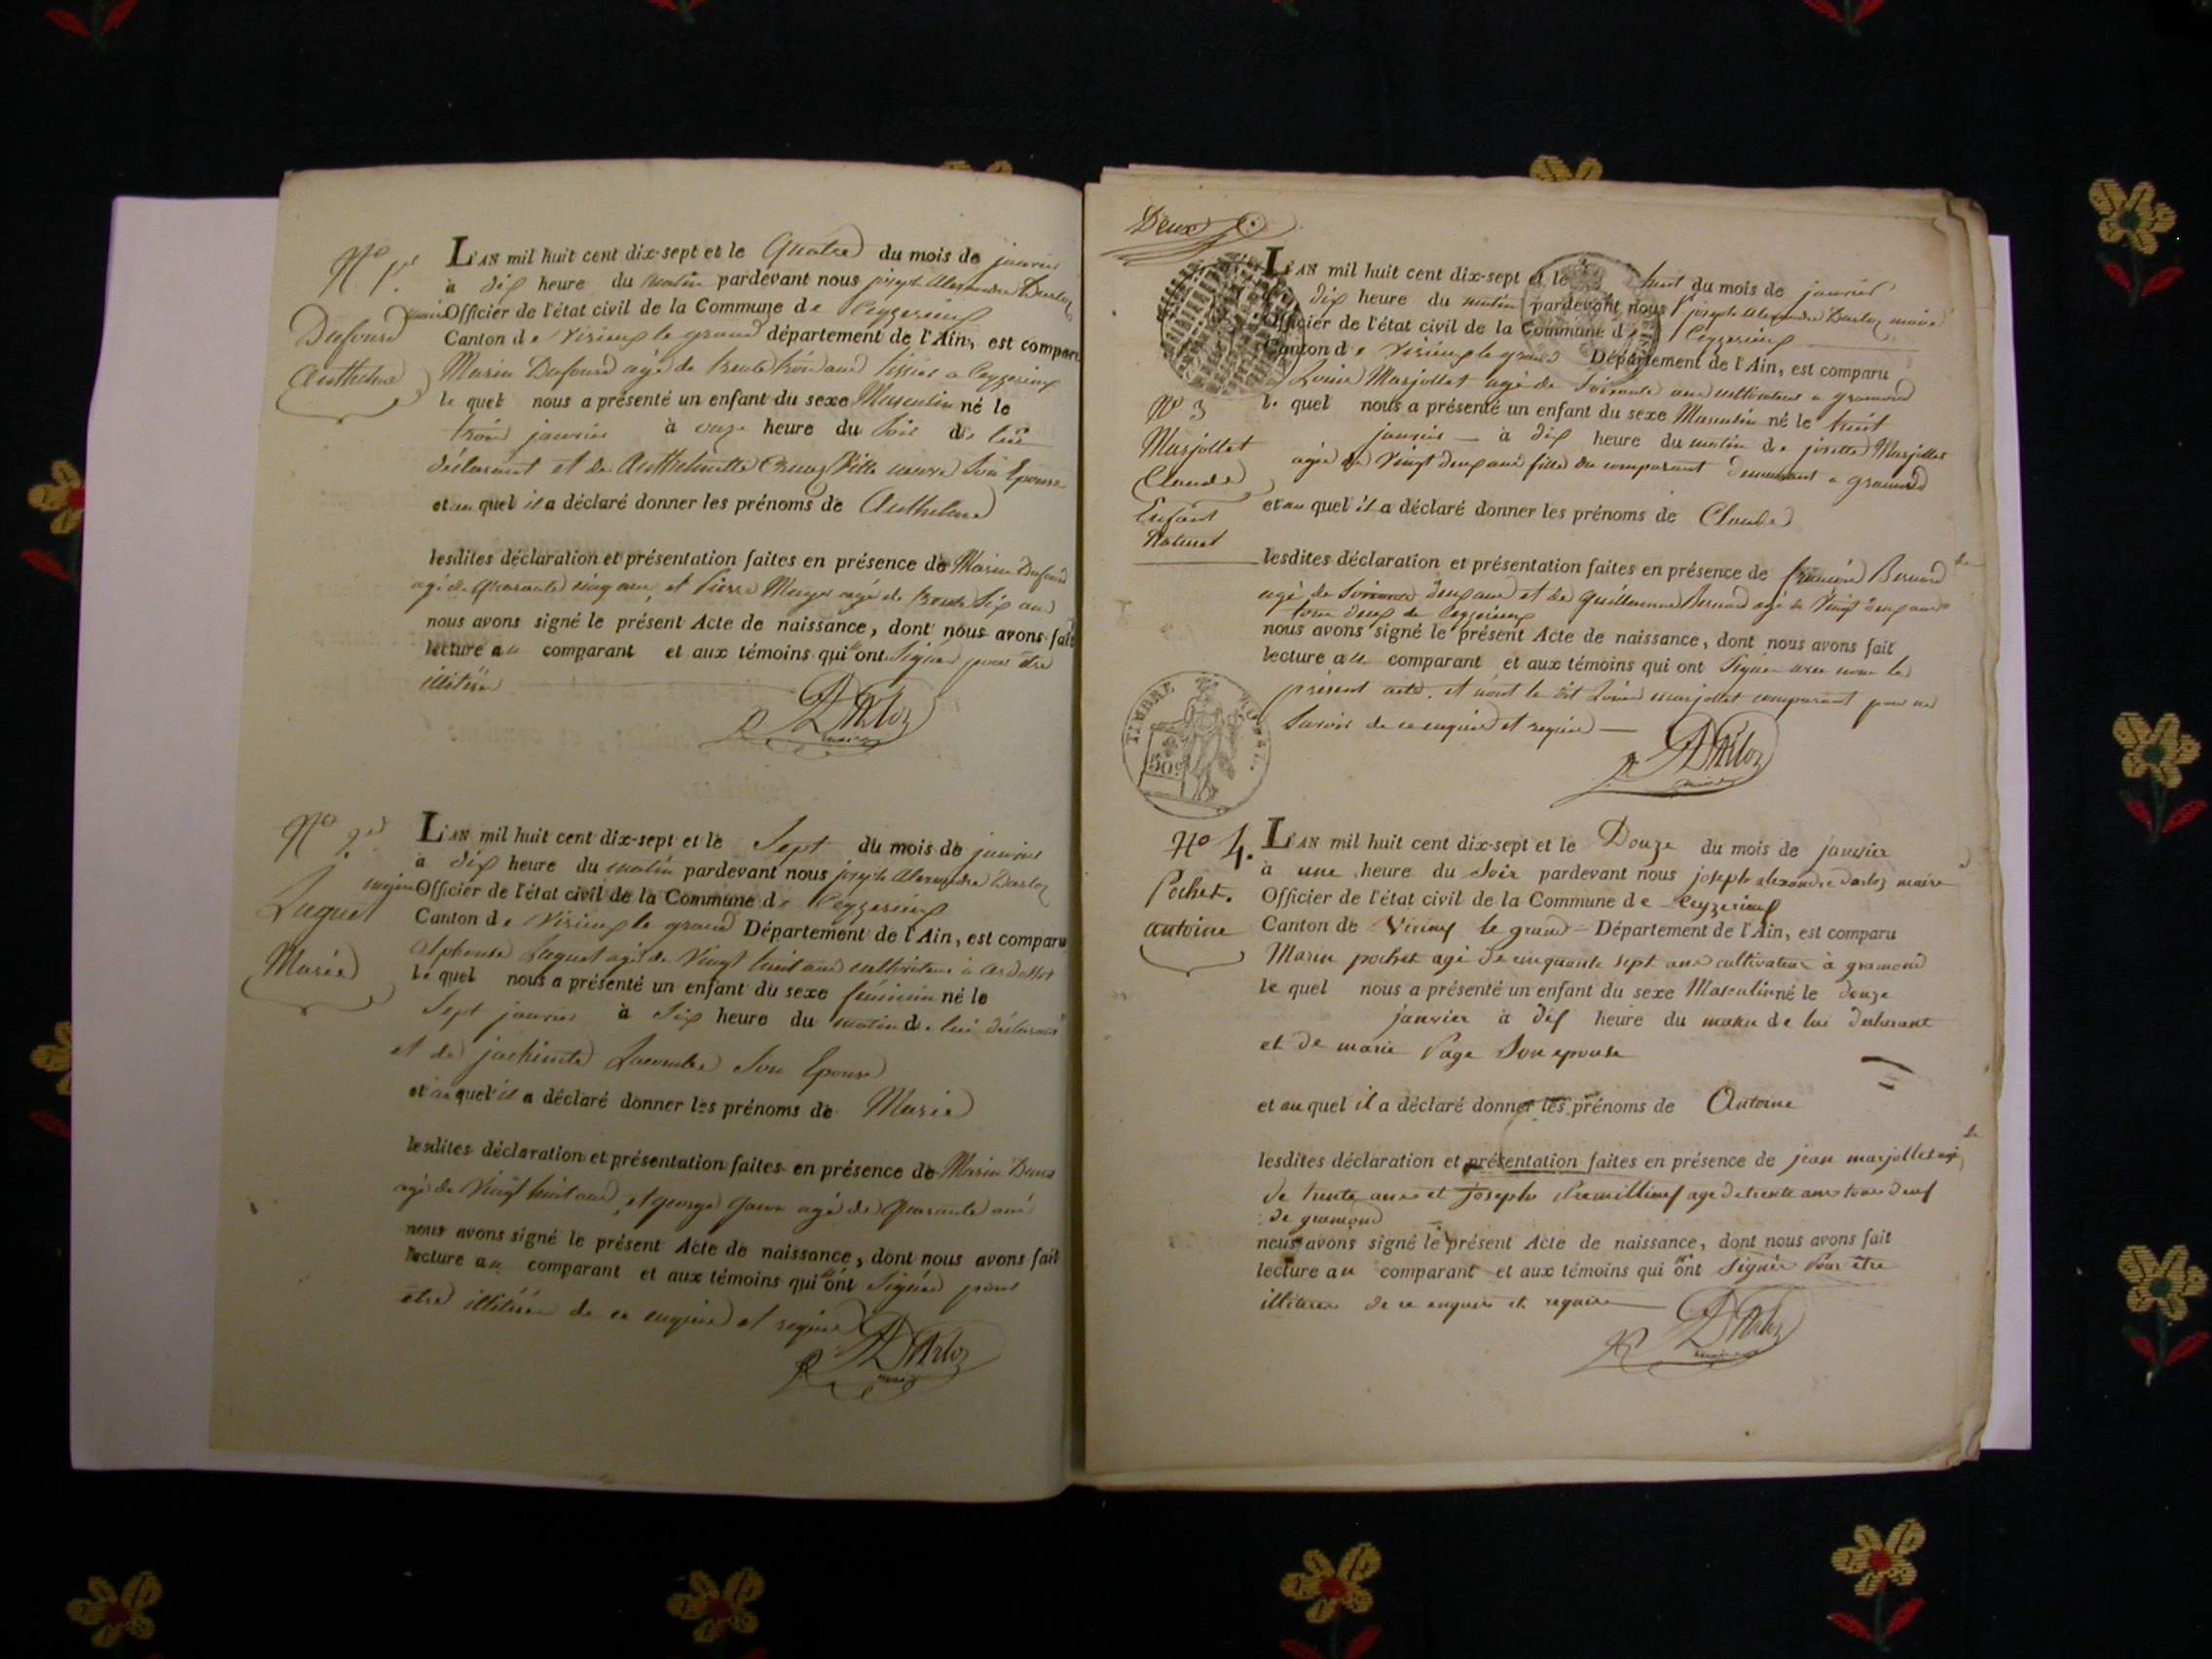 N° 1er
Dufour
Anthelme
L'AN mil huit cent dix-sept et le Quatre du mois de janvier
à dix heure du matin pardevant nous joseph Alexandre Darloz
maire Officier de l'état civil de la Commune de Ceyzerieux
Canton de Virieux le grand département de l'Ain, est comparu
Marin Dufour agé de trente trois ans tissier a Ceyzerieux
le quel nous a présenté un enfant du sexe Masculin né le
trois janvier à onze heure du Soir de lui
déclarant et de Anthelmette Son Epouse
et au quel il a déclaré donner les prénoms de Anthelme
lesdites déclaration et présentation faites en présence de Marin Dufour
agé de Quarante cinq ans et Pierre agé de trente Six ans
nous avons signé le présent Acte de naissance, dont nous avons fait
lecture au comparant et aux témoins qui n'ont Signés pour être
illitérés
DArloz
maire
N° 2e
Luquet
Marie
L'AN mil huit cent dix-sept et le Sept du mois de janvier
à dix heure du matin pardevant nous joseph Alexandre Darloz
maire Officier de l'état civil de la Commune de Ceyzerieux
Canton de Virieux le grand Département de l'Ain, est comparu
Alphonse Luquet agé de Vingt huit ans cultivateur à ardosset
le quel nous a présenté un enfant du sexe féminin né le
Sept janvier à Six heure du matin de lui déclarant
et de jachinte Lacombe Son Epouse
et au quel il a déclaré donner les prénoms de Marie
lesdites déclaration et présentation faites en présence de Marin
agé de Vingt huit ans, et george agé de Quarante ans
nous avons signé le présent Acte de naissance, dont nous avons fait
lecture au comparant et aux témoins qui n'ont Signés pour
être illitérés de ce enquis et requis
DArloz
maire
Deux
N° 3
Marjollet
Claude
Enfant
Naturel
L'AN mil huit cent dix-sept et le huit du mois de janvier
dix heure du matin pardevant nous joseph Alexandre Darloz maire
Officier de l'état civil de la Commune de Ceyzerieux
Canton de Virieux le grand Département de l'Ain, est comparu
Louis Marjollet agé de Soixante ans cultivateur a gramond
le quel nous a présenté un enfant du sexe Masculin né le huit
janvier à dix heure du matin de josette Marjollet
agée de Vingt deux ans fille du comparant demeurant a gramond
et au quel il a déclaré donner les prénoms de Claude
lesdites déclaration et présentation faites en présence de françois Bernard
agé de Soixante deux ans et de guillaume Bernard agé de Vingt deux ans
tous deux de Ceyzerieux
nous avons signé le présent Acte de naissance, dont nous avons fait
lecture au comparant et aux témoins qui ont Signé avec nous le
présent acte, et non le dit Louis marjollet comparant pour ne
Savoir de ce enquis et requis
TIMBRE ROYAL
50c
DArloz
maire
N° 4.
Pochet.
antoine
L'AN mil huit cent dix-sept et le Douze du mois de janvier
à une heure du Soir pardevant nous joseph alexandre darloz maire
Officier de l'état civil de la Commune de Ceyzerieux
Canton de Virieux le grand Département de l'Ain, est comparu
Marin pochet agé de cinquante sept ans cultivateur à gramond
le quel nous a présenté un enfant du sexe Masculin né le douze
janvier à dix heure du matin de lui declarant
et de marie Page Son epouse
et au quel il a déclaré donner les prénoms de Antoine
lesdites déclaration et présentation faites en présence de jean marjollet agé
de trente ans et joseph Premillieux age de trente ans tous deux
de gramond
nous avons signé le présent Acte de naissance, dont nous avons fait
lecture au comparant et aux témoins qui n'ont Signés Pour être
illiteres de ce enquis et requis
DArloz
maire